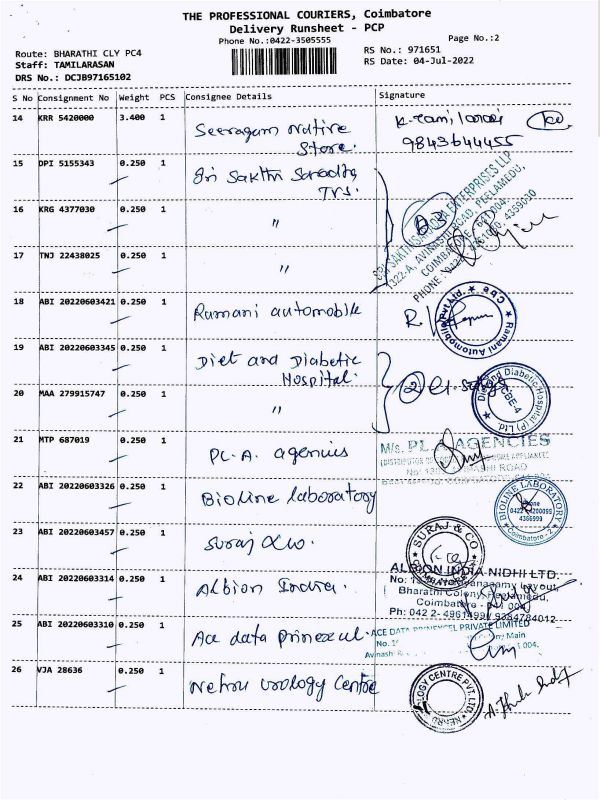 THE PROFESSIONAL COURIERS, Coimbatore
Delivery Runsheet - PCP
Phone No.:0422-3505555
Page No.:2
Route: BHARATHI CLY PC4
RS No.: 971651
Staff: TAMILARASAN
RS Date: 04-Jul-2022
DRS No.: DCJB97165102
S No Consignment No Weight PCS Consignee Details Signature
14 KRR 5420000 3.400 1 Seeragam Native Store.
9843644455
15 DPI 5155343 0.250 1 Sri Sakthi Saradha Trs.
SRI SAKTHI SARADHA ENTERPRISES LLP
1322-A, AVINASHI ROAD, PEELAMEDU,
COIMBATORE 641 004.
PHONE
16 KRG 4377030 0.250 1 "
17 TNJ 22438025 0.250 1 "
18 ABI 20220603421 0.250 1 Ramani automobile
Ramani Automobile Pvt.Ltd. ★ Cbe ★
19 ABI 20220603345 0.250 1 Diet and Diabetic Hospital.
Diet and Diabetic Hospital (P) Ltd.
CBE-4
20 MAA 279915747 0.250 1 "
21 MTP 687019 0.250 1 PL.A. agencies
M/s. PL.A. AGENCIES
22 ABI 20220603326 0.250 1 Bioline laboratory
BIOLINE LABORATORY
Phone
4366999
Coimbatore - 2
23 ABI 20220603457 0.250 1 Suraj &co.
SURAJ & CO
COIMBATORE
24 ABI 20220603314 0.250 1 Albion India.
ALBION INDIA NIDHI LTD.
Layout,
Bharathi Colony, Peelamedu,
Coimbatore - 641 004
9384784012
25 ABI 20220603310 0.250 1 Ace data prinexcel.
ACE DATA PRINEXCEL PRIVATE LIMITED
Main
26 VJA 28636 0.250 1 Nehru urology Centre
NEHRU UROLOGY CENTRE PVT. LTD.